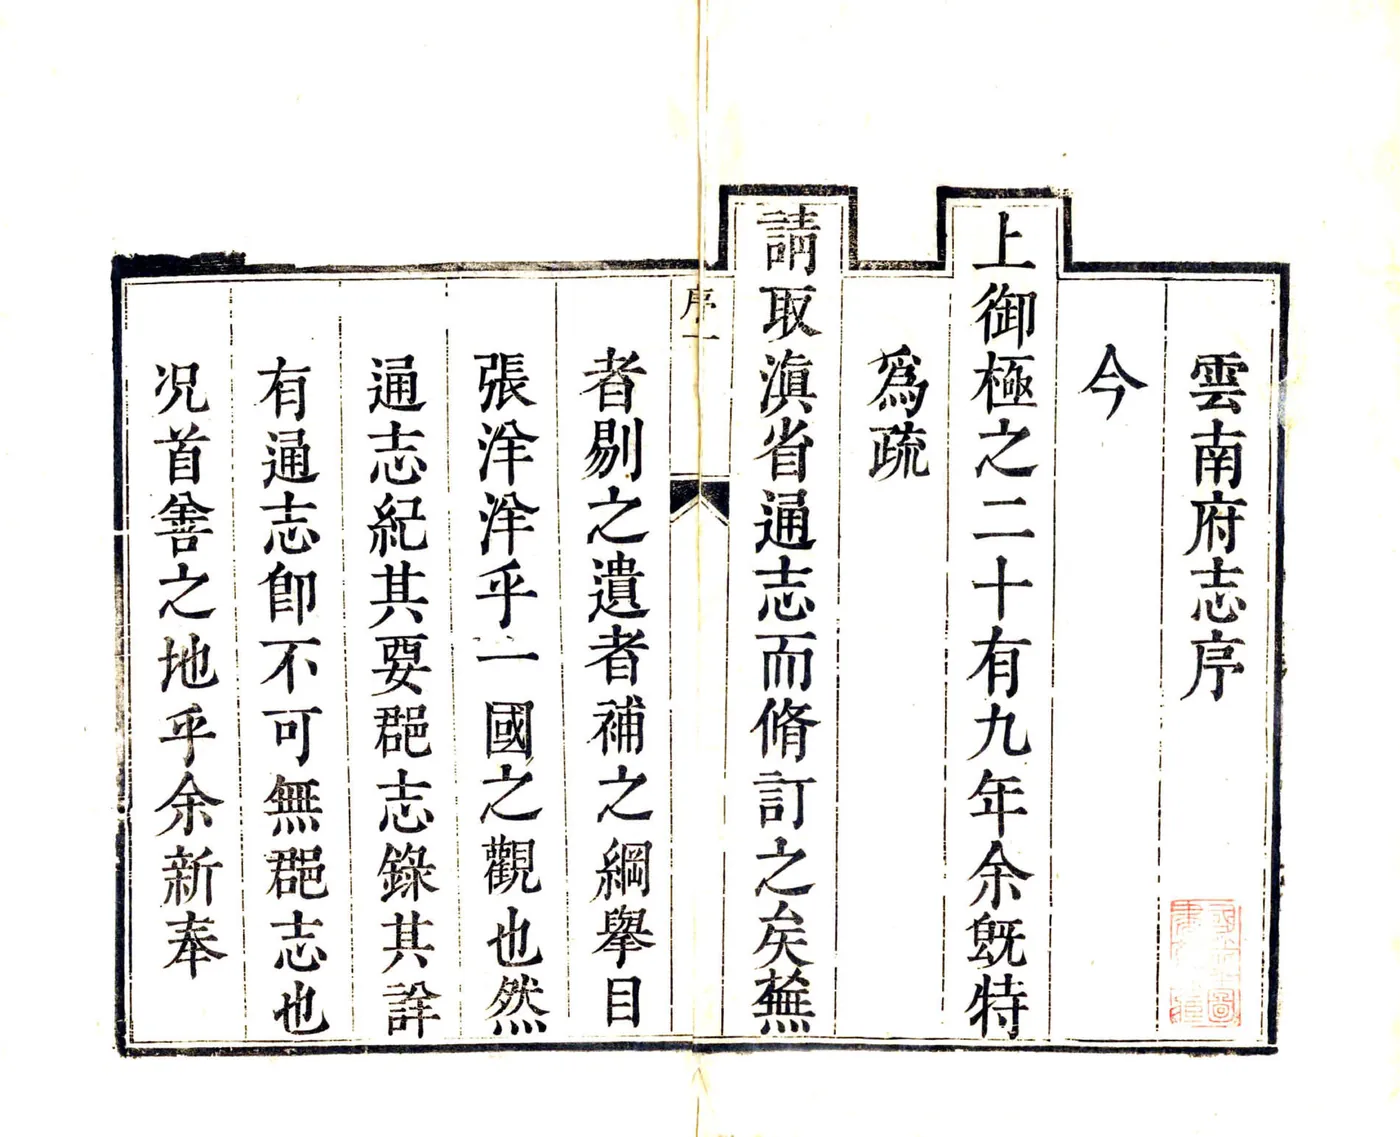 雲南府志序
今
上御極之二十有九年余既特
爲疏
請取滇省通志而脩訂之矣蕪
序
一
者剔之遺者補之綱舉目
張洋洋乎一國之觀也然
通志紀其要郡志錄其詳
有通志卽不可無郡志也
况首善之地乎余新奉